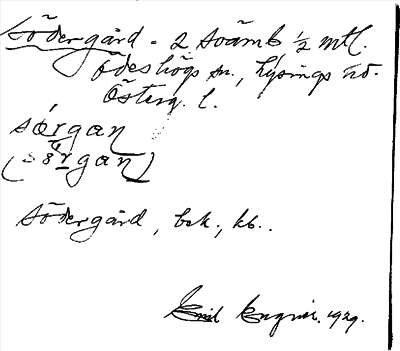 Södergård - 2 små mb ½ mtl.
Ödeshögs sn., Lysings hd.
Österg. l.
sørgan
(s8rgan)
Södergård, bek., kb..
Emil Engvir. 1929.